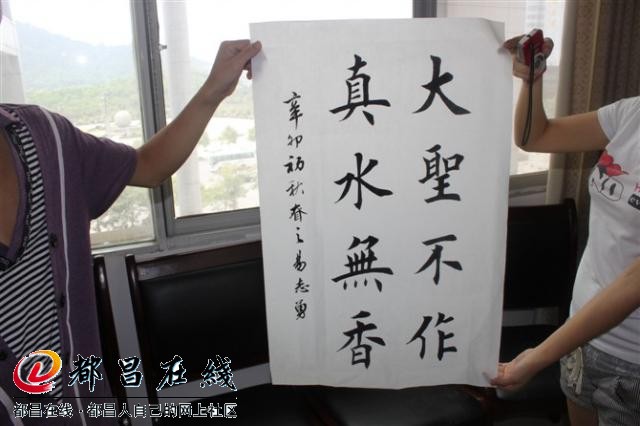 大聖不作
真水無香
辛卯初秋春之易志勇
都昌在线
都昌在线·都昌人自己的网上社区